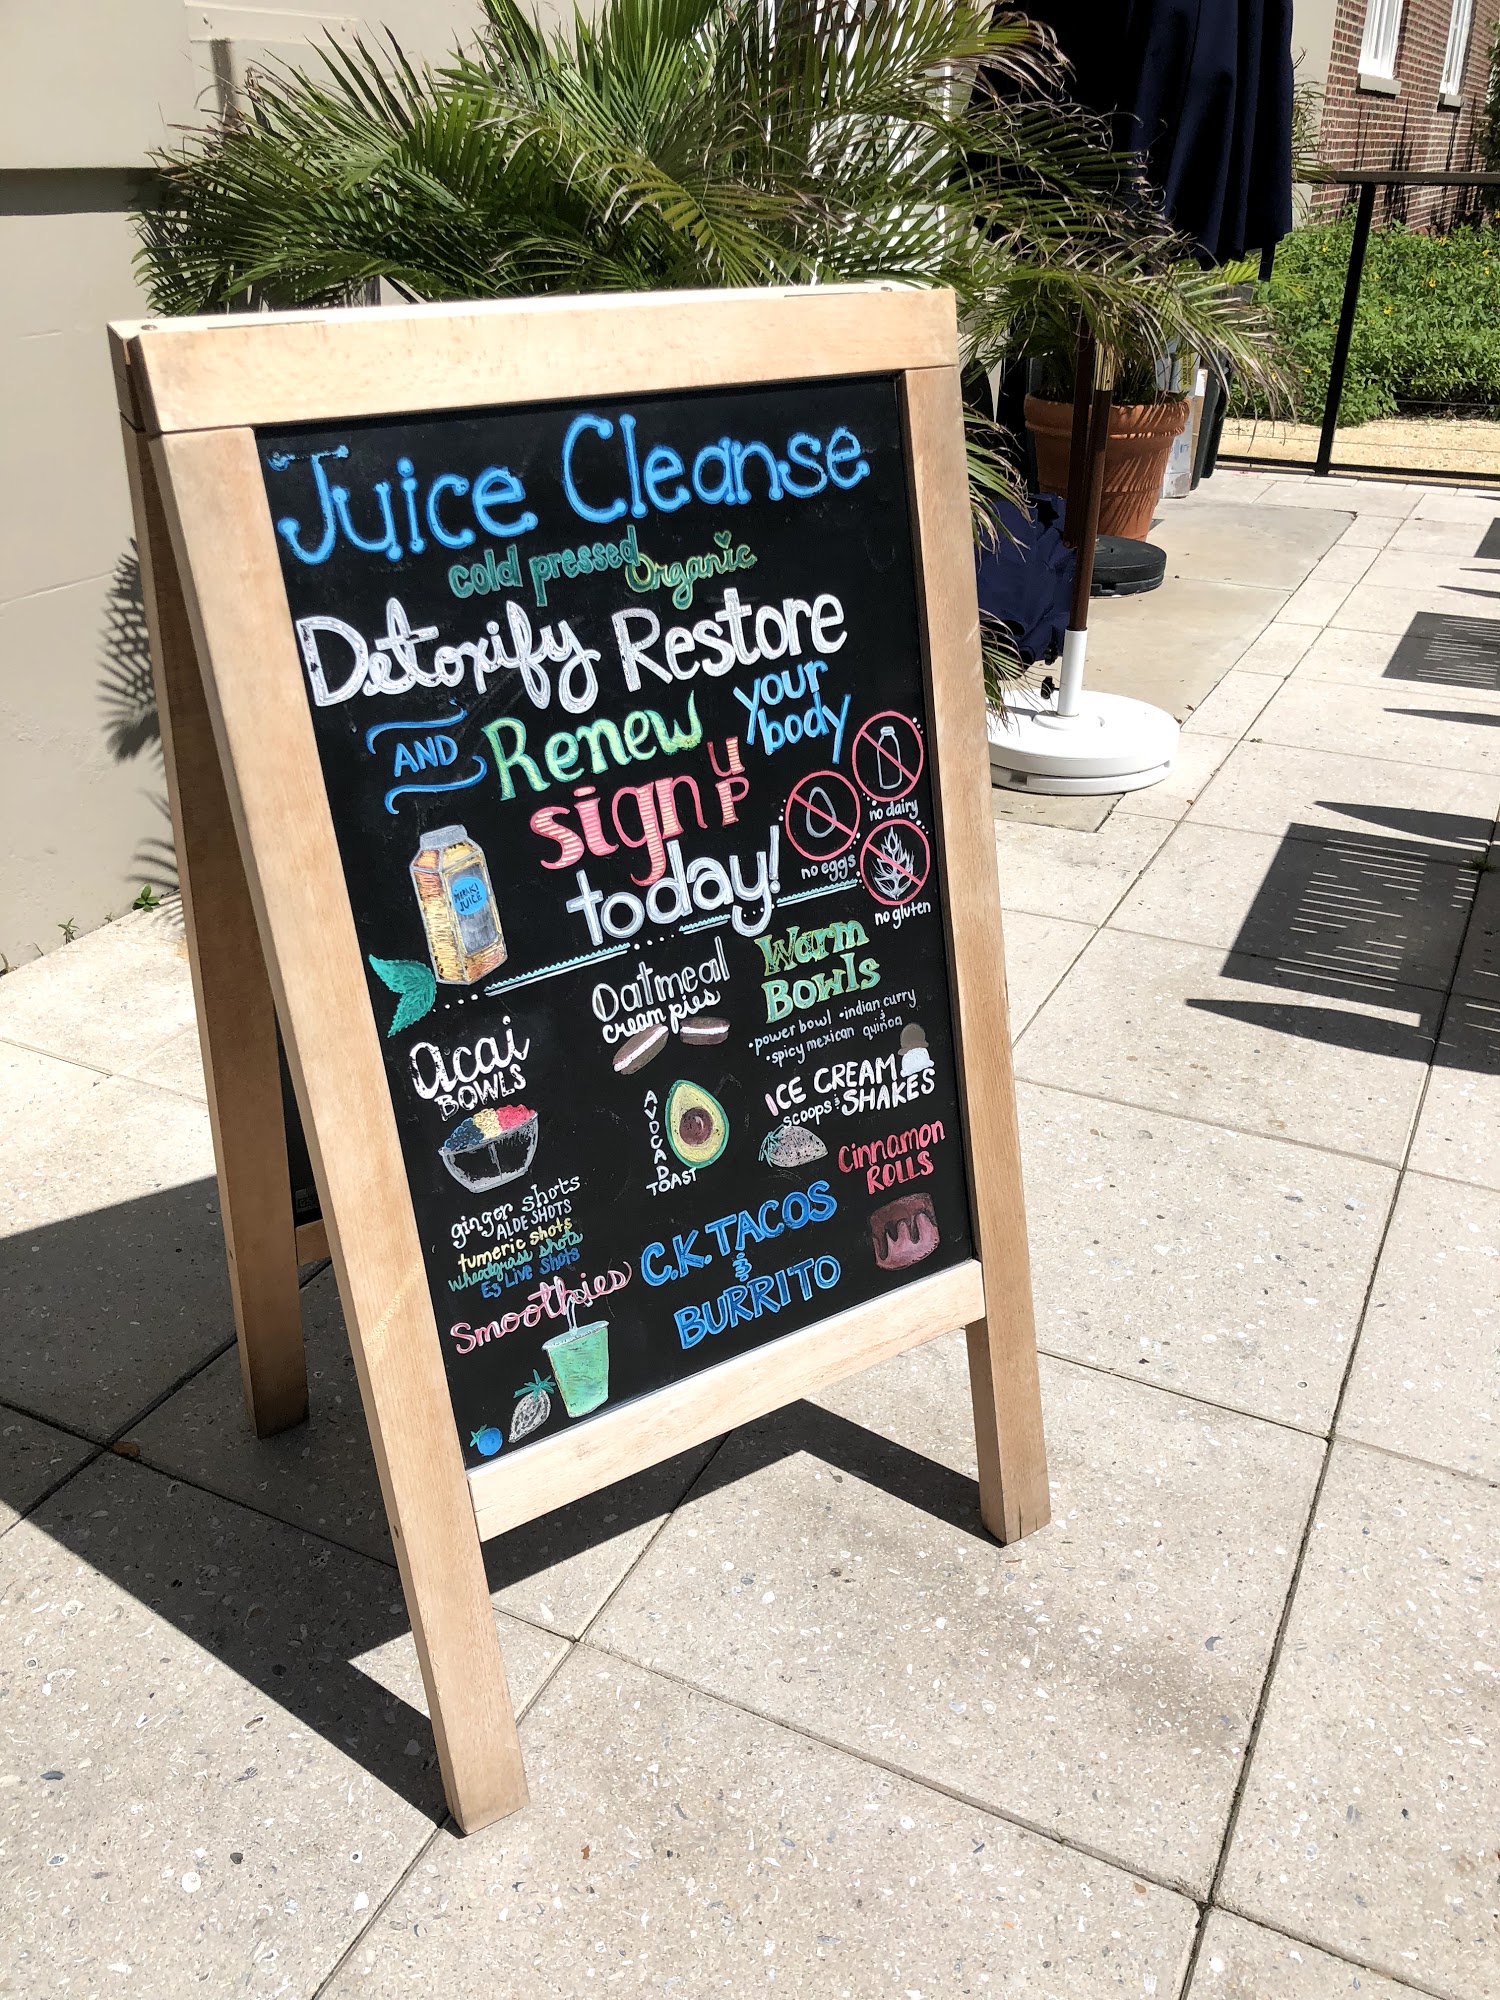 Juice Cleanse
cold pressed Organic
Detoxify Restore
AND Renew your body
sign up
today!
no dairy
no eggs
no gluten
JUICE
Oatmeal
cream pies
Warm
Bowls
•power bowl •indian curry
•spicy mexican & quinoa
Acai
BOWLS
AVOCADO
TOAST
ICE CREAM
scoops & SHAKES
Cinnamon
ROLLS
ginger shots
ALOE SHOTS
tumeric shots
wheatgrass shots
E3 Live Shots
Smoothies
C.K. TACOS
&
BURRITO